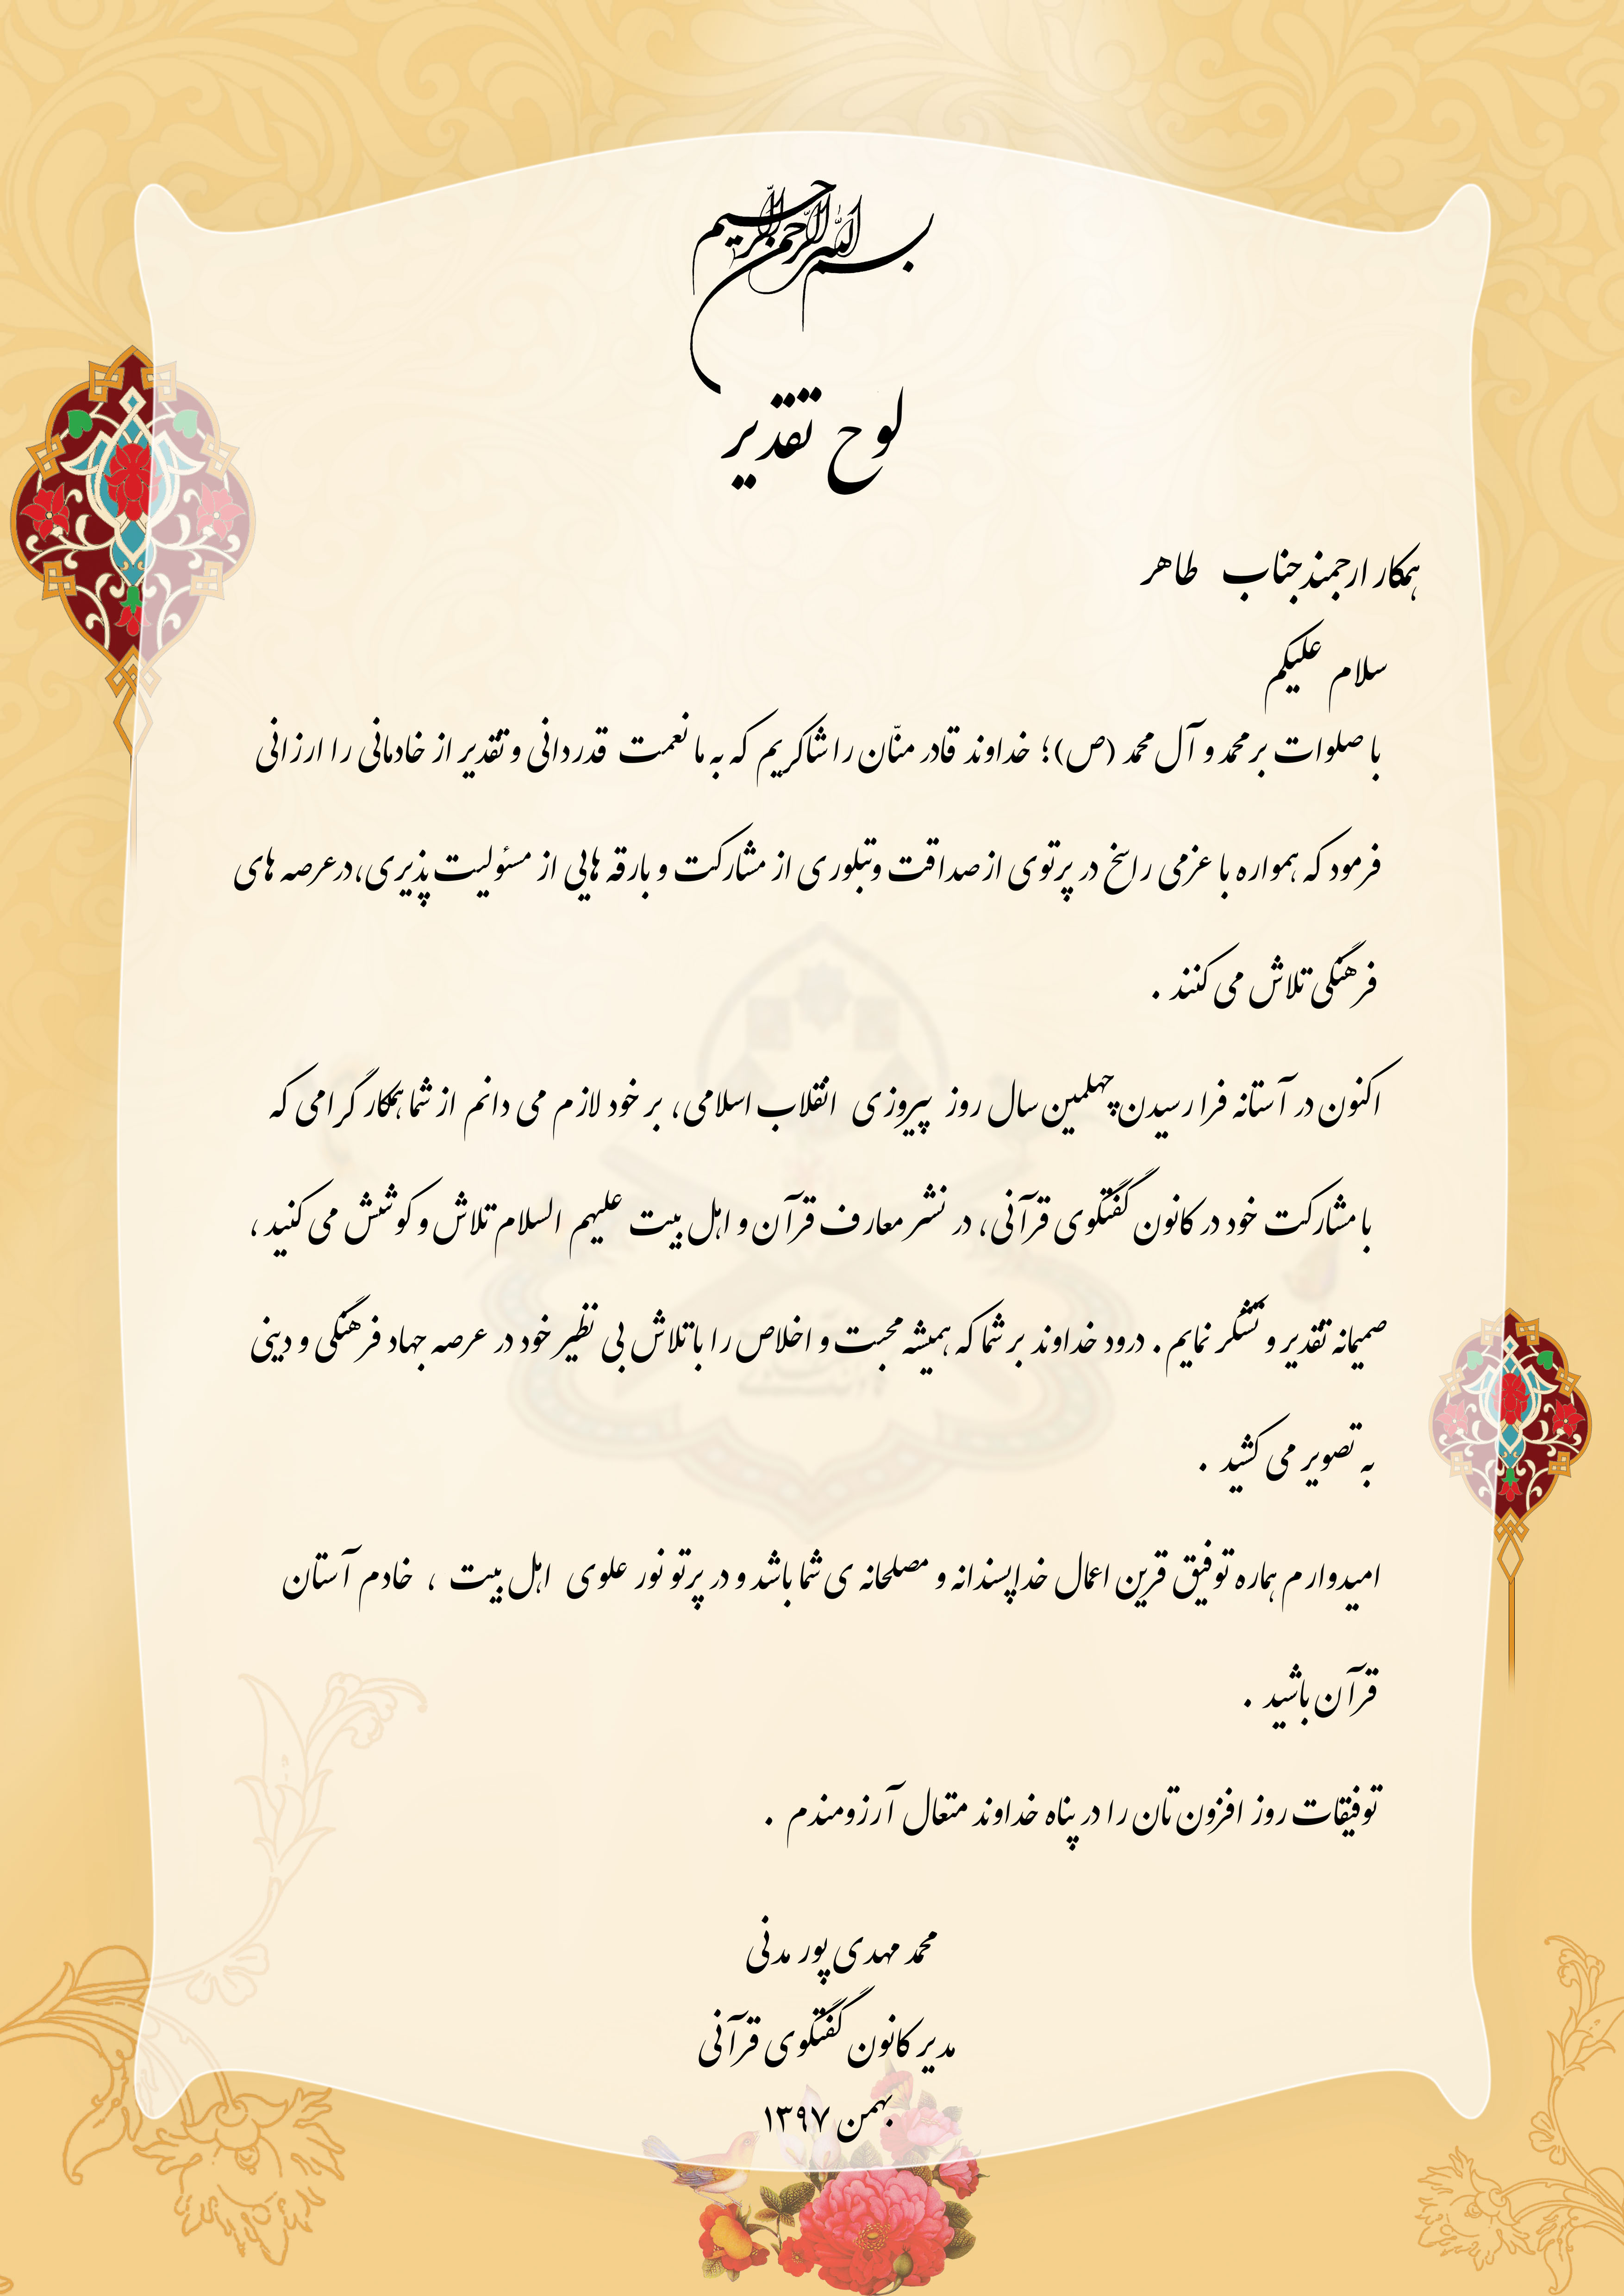 بسم الله الرحمن الرحیم
لوح تقدیر
همکار ارجمند جناب طاهر
سلام علیکم
با صلوات بر محمد و آل محمد (ص)؛ خداوند قادر منّان را شاکریم که به ما نعمت قدردانی و تقدیر از خادمانی را ارزانی
فرمود که همواره با عزمی راسخ در پرتوی از صداقت وتبلوری از مشارکت و بارقه هایی از مسئولیت پذیری،درعرصه های
فرهنگی تلاش می کنند .
اکنون در آستانه فرا رسیدن چهلمین سال روز پیروزی انقلاب اسلامی، بر خود لازم می دانم از شما همکار گرامی که
با مشارکت خود در کانون گفتگوی قرآنی، در نشر معارف قرآن و اهل بیت علیهم السلام تلاش و کوشش می کنید ،
صمیمانه تقدیر و تشکر نمایم . درود خداوند بر شما که همیشه محبت و اخلاص را با تلاش بی نظیر خود در عرصه جهاد فرهنگی و دینی
به تصویر می کشید .
امیدوارم هماره توفیق قرین اعمال خداپسندانه و مصلحانه ی شما باشد و در پرتو نور علوی اهل بیت ، خادم آستان
قرآن باشید .
توفیقات روز افزون تان را در پناه خداوند متعال آرزومندم .
محمد مهدی پور مدنی
مدیر کانون گفتگوی قرآنی
بهمن ۱۳۹۷